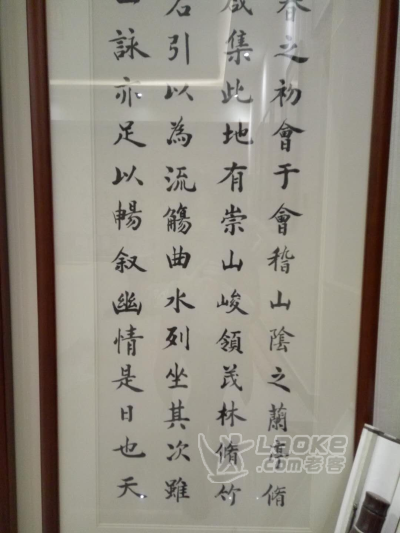 春之初會于會稽山陰之蘭亭脩
咸集此地有崇山峻領茂林脩竹
右引以為流觴曲水列坐其次雖
一詠亦足以暢叙幽情是日也天
LAOKE
.com老客